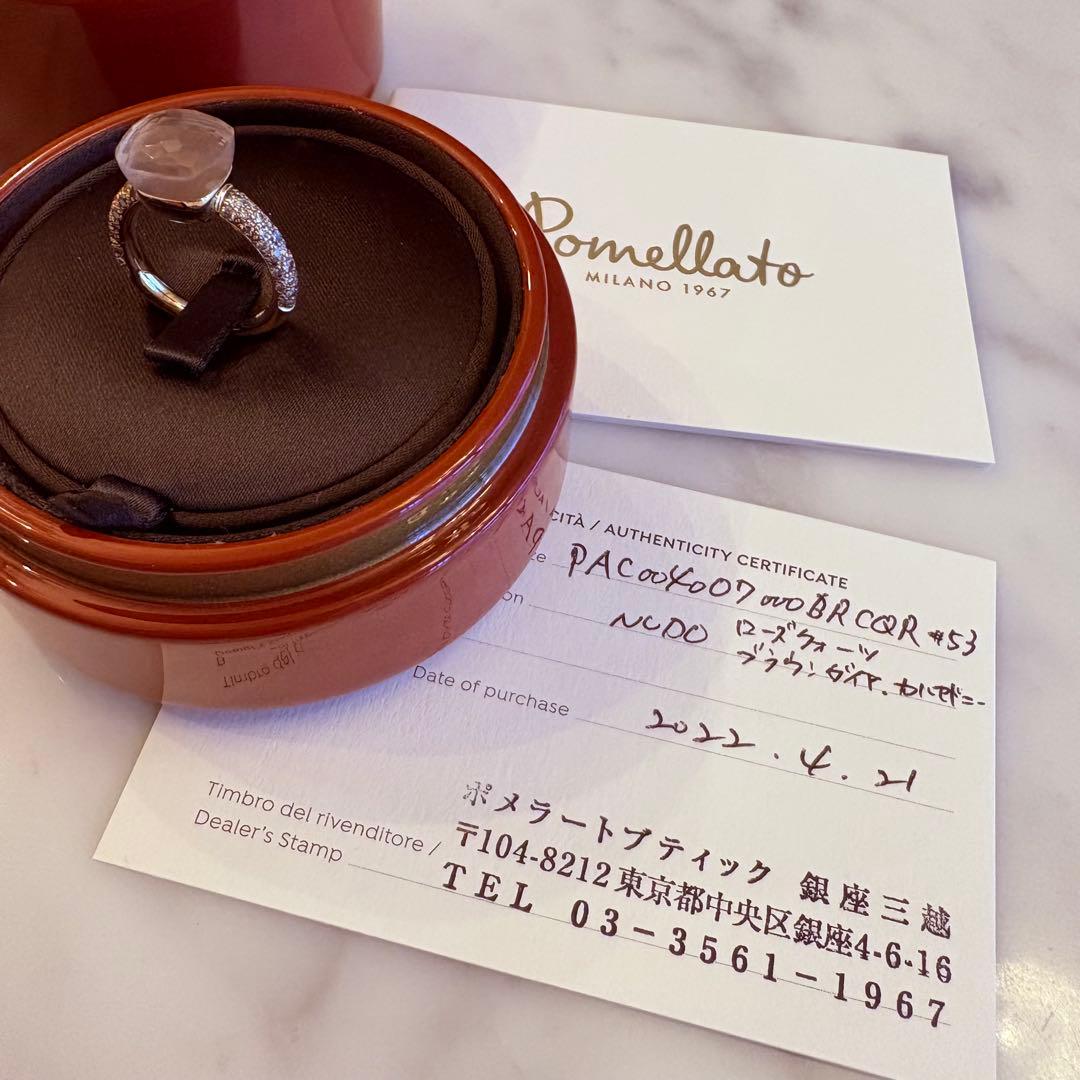 Pomellato
MILANO 1967
CITÀ / AUTHENTICITY CERTIFICATE
PAC004007000BRCQR #53
NUDO ローズクォーツ
ブラウンダイヤ、カルセドニー
Date of purchase 2022.4.21
Timbro del rivenditore /
Dealer's Stamp
ポメラートブティック 銀座三越
〒104-8212東京都中央区銀座4-6-16
TEL 03-3561-1967